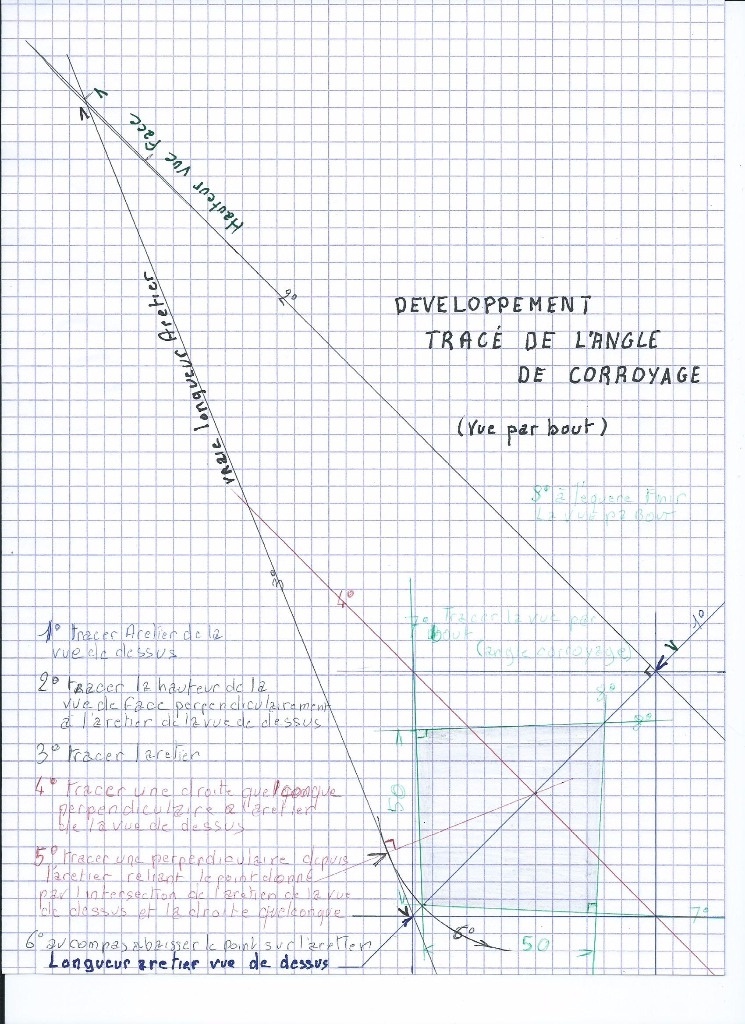 Hauteur vue Face
2°
DEVELOPPEMENT
TRACÉ DE L'ANGLE
DE CORROYAGE
(Vue par bout)
vraie longueur Aretier
8° à l'équerre Finir
La vue par Bout
3°
4°
7° Tracer la vue par
bout
(angle corroyage)
1°
1° Tracer Aretier de la
vue de dessus
2° Tracer la hauteur de la
vue de face perpendiculairement
à l'aretier de la vue de dessus
3° Tracer l'aretier
8°
8°
4° Tracer une droite quelconque
perpendiculaire a l'aretier
de la vue de dessus
50
5° Tracer une perpendiculaire depuis
l'aretier reliant le point donné
par l'intersection de l'aretier de la vue
de dessus et la droite quelconque
7°
6° au compas abaisser le point sur l'aretier
6°
50
Longueur aretier vue de dessus